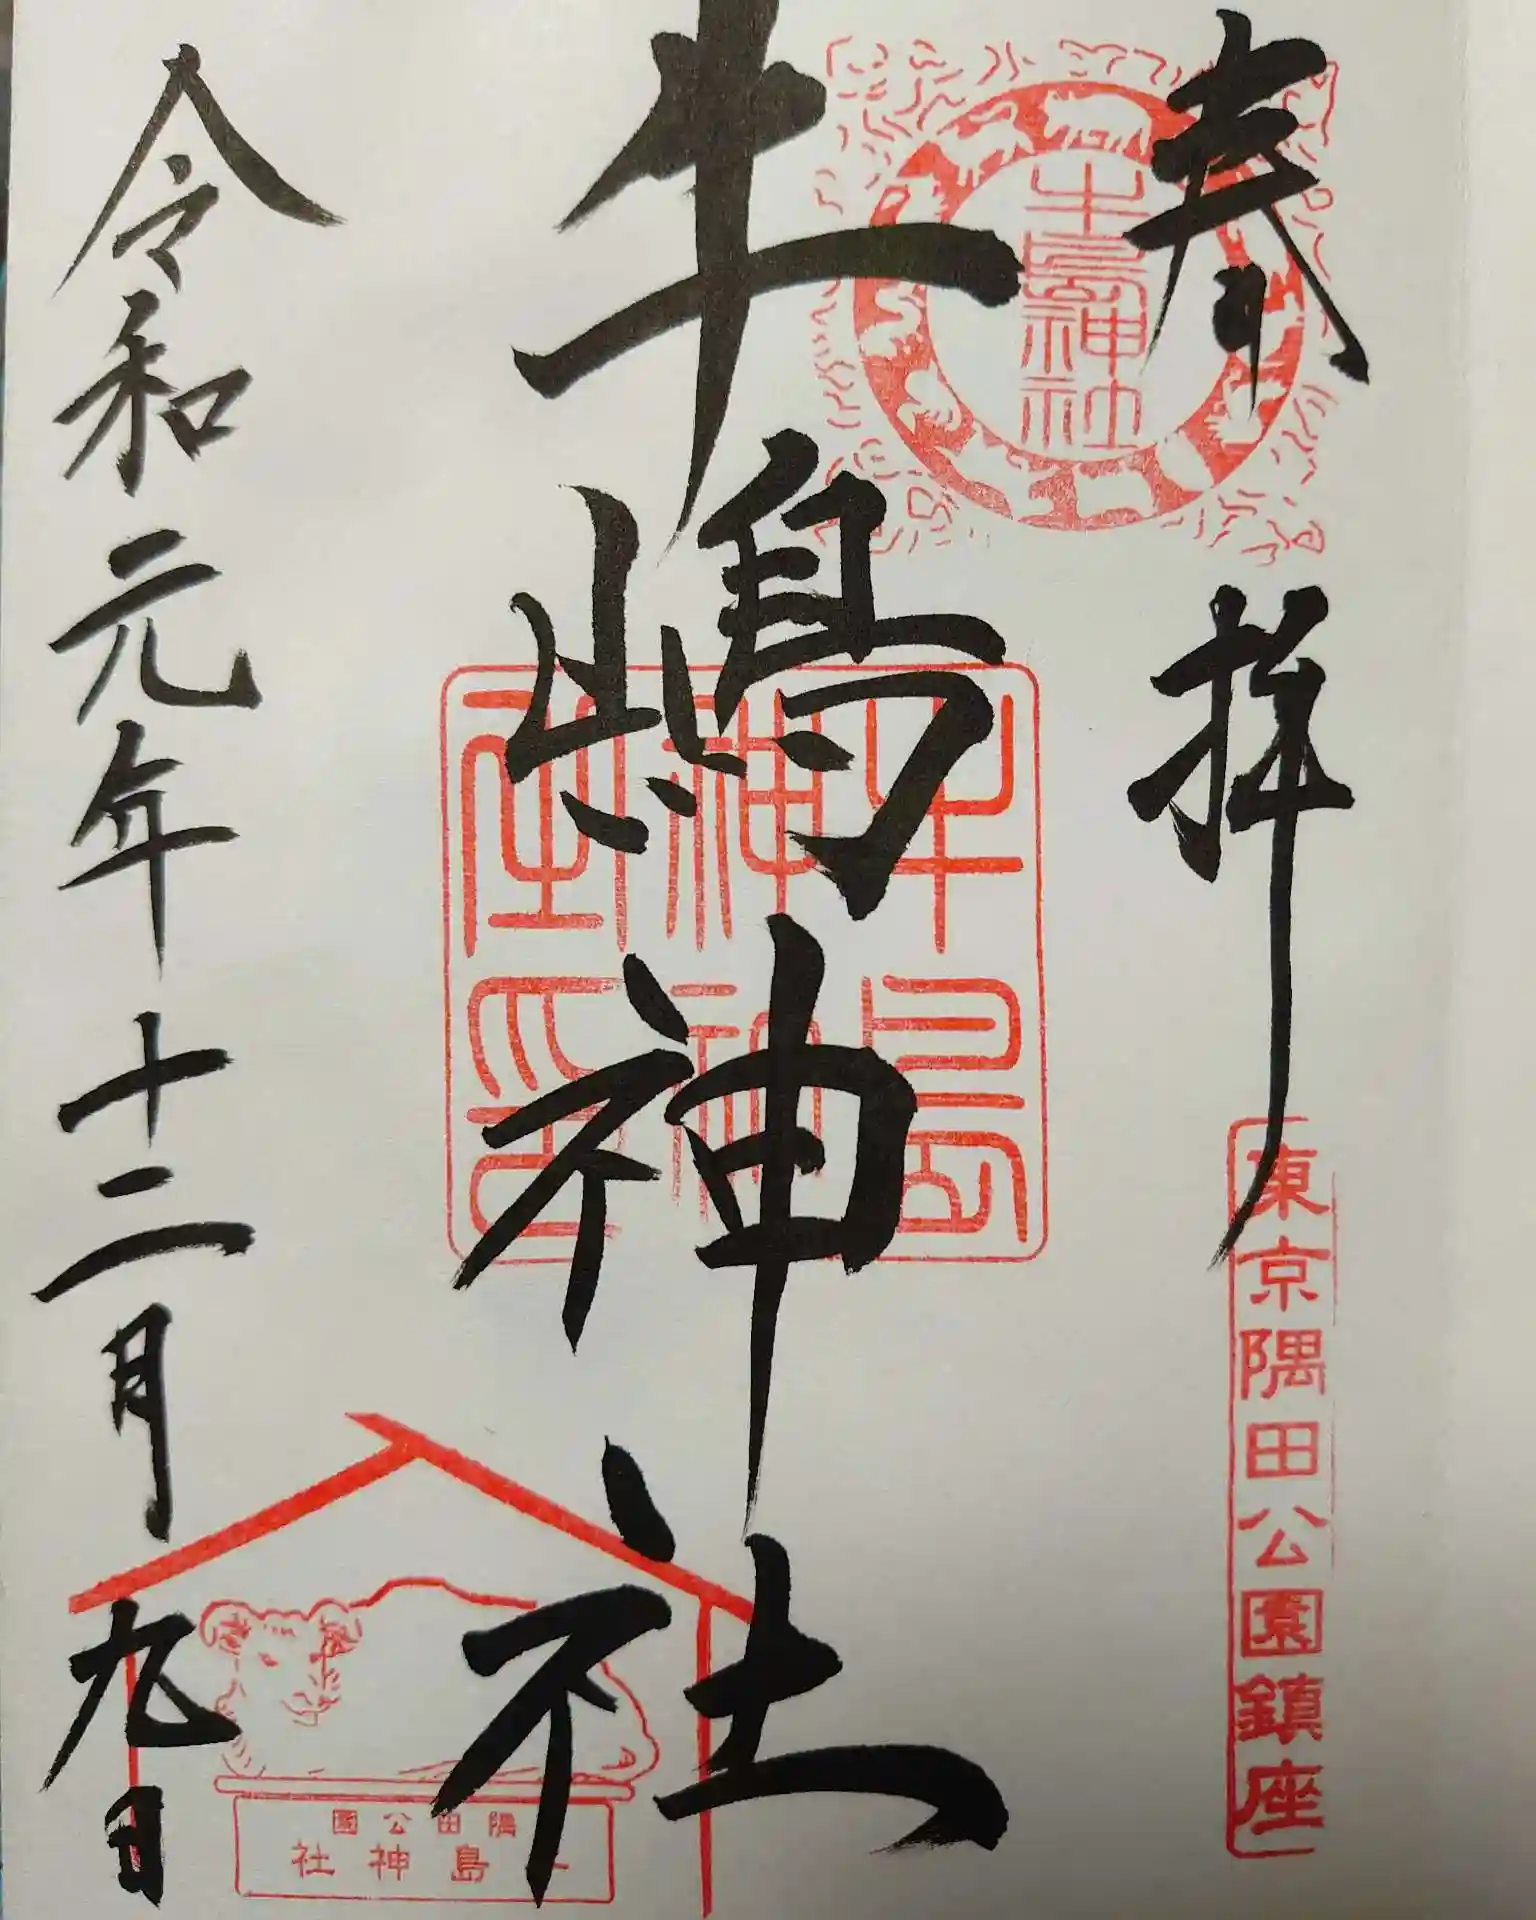 奉拝
牛島神社
東京隅田公園鎮座
牛嶋神社
牛島
神社
令和元年十二月九日
隅田公園
島神社